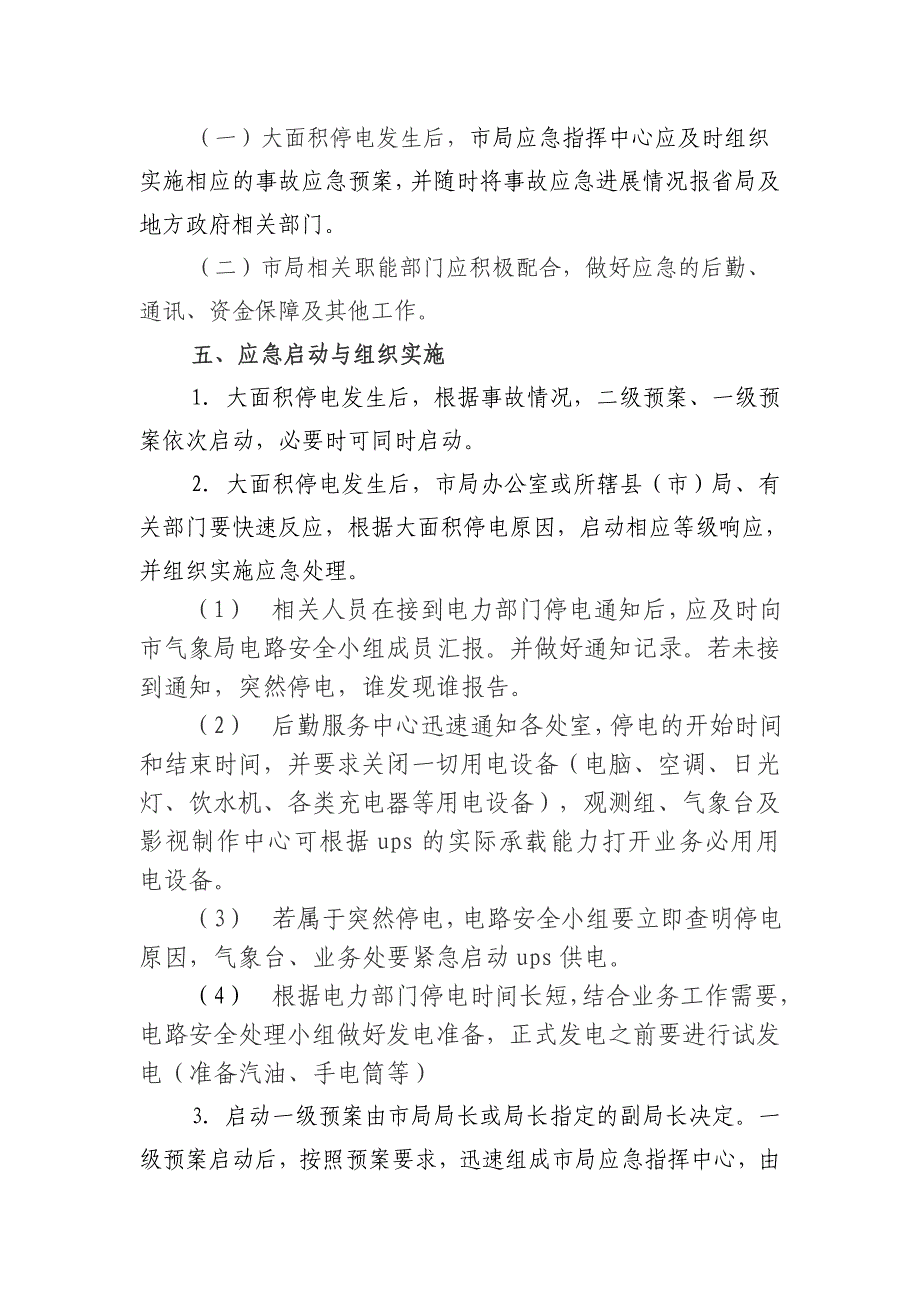 （一）大面积停电发生后，市局应急指挥中心应及时组织
实施相应的事故应急预案，并随时将事故应急进展情况报省局及
地方政府相关部门。
（二）市局相关职能部门应积极配合，做好应急的后勤、
通讯、资金保障及其他工作。
五、应急启动与组织实施
1. 大面积停电发生后，根据事故情况，二级预案、一级预
案依次启动，必要时可同时启动。
2. 大面积停电发生后，市局办公室或所辖县（市）局、有
关部门要快速反应，根据大面积停电原因，启动相应等级响应，
并组织实施应急处理。
（1） 相关人员在接到电力部门停电通知后，应及时向
市气象局电路安全小组成员汇报。并做好通知记录。若未接
到通知，突然停电，谁发现谁报告。
（2） 后勤服务中心迅速通知各处室，停电的开始时间
和结束时间，并要求关闭一切用电设备（电脑、空调、日光
灯、饮水机、各类充电器等用电设备），观测组、气象台及
影视制作中心可根据 ups 的实际承载能力打开业务必用用
电设备。
（3） 若属于突然停电，电路安全小组要立即查明停电
原因，气象台、业务处要紧急启动 ups 供电。
（4） 根据电力部门停电时间长短，结合业务工作需要，
电路安全处理小组做好发电准备，正式发电之前要进行试发
电（准备汽油、手电筒等）
3. 启动一级预案由市局局长或局长指定的副局长决定。一
级预案启动后，按照预案要求，迅速组成市局应急指挥中心，由